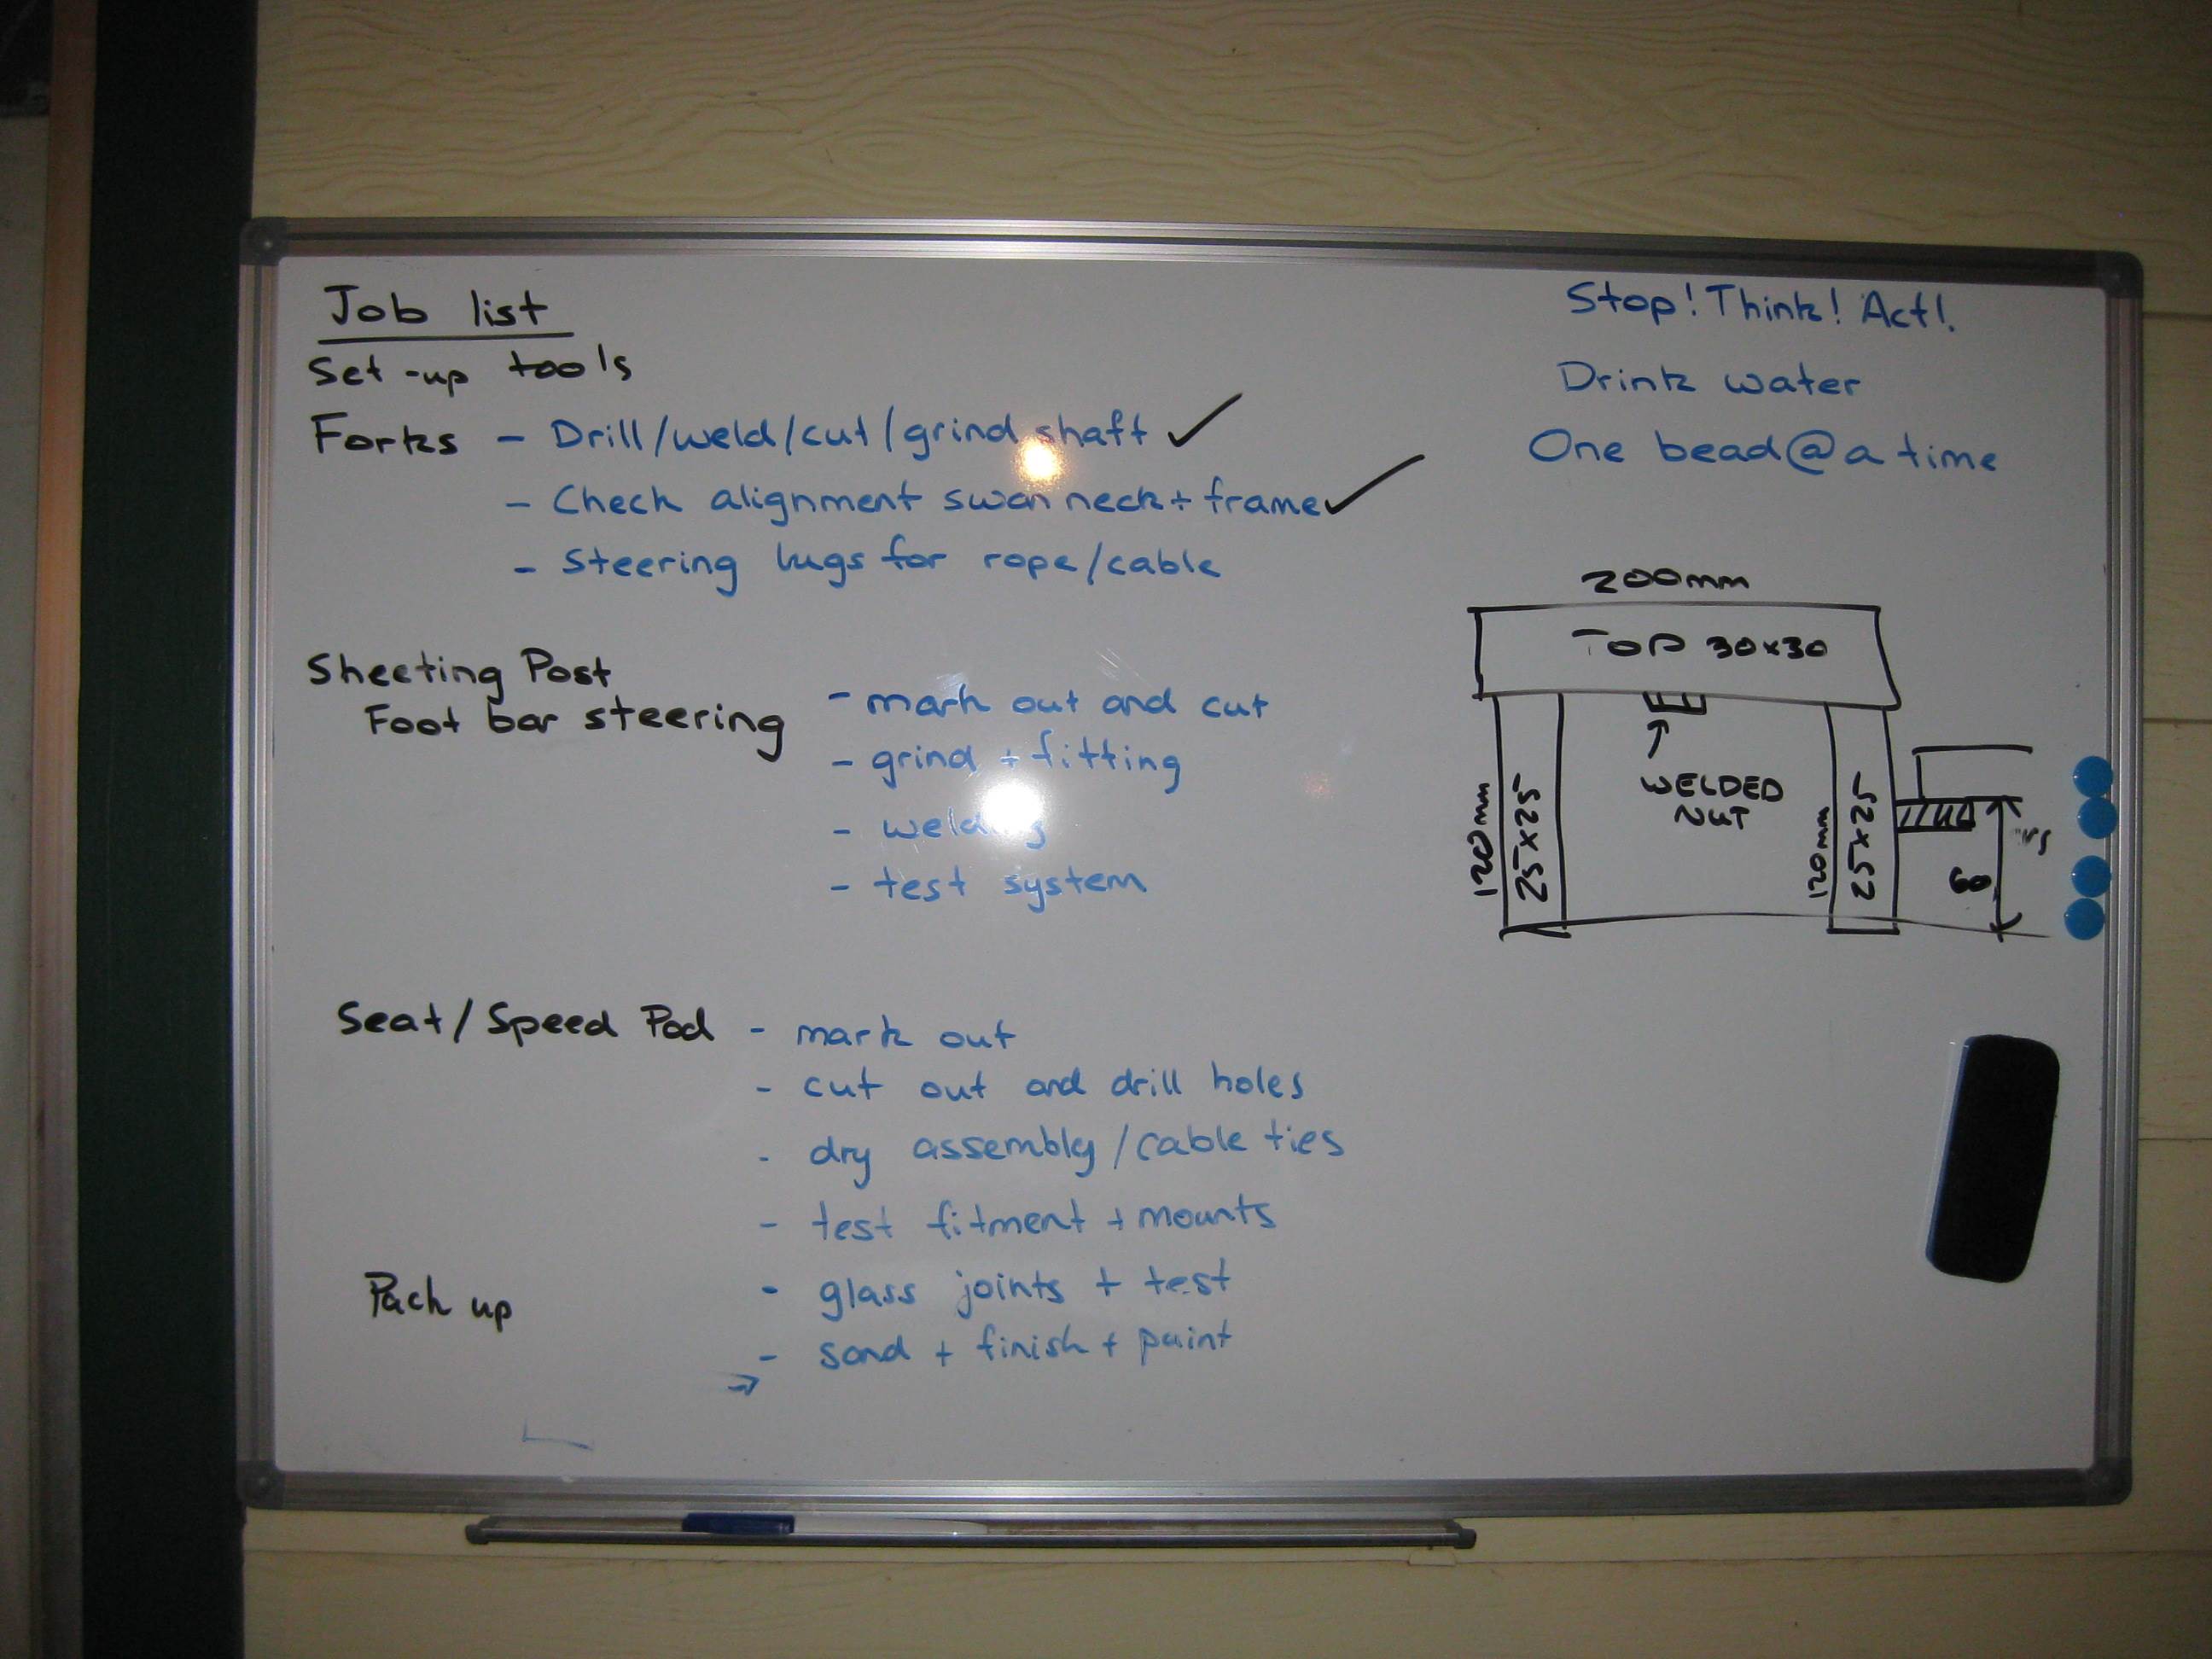 Job list
Set-up tools
Forks - Drill/weld/cut/grind shaft ✓
- Check alignment swan neck + frame ✓
- Steering lugs for rope/cable
Sheeting Post
Foot bar steering
- mark out and cut
- grind + fitting
- welding
- test system
Seat/Speed Pod - mark out
- cut out and drill holes
- dry assembly/cable ties
- test fitment + mounts
- glass joints + test
- sand + finish + paint
Pack up
Stop! Think! Act!.
Drink water
One bead @ a time
200mm
TOP 30x30
WELDED
NUT
120mm
25x25
120mm
25x25
60